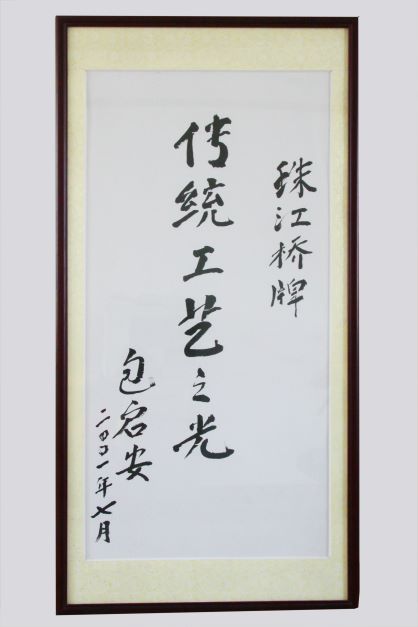 珠江桥牌
传统工艺之光
包启安
二〇〇一年七月